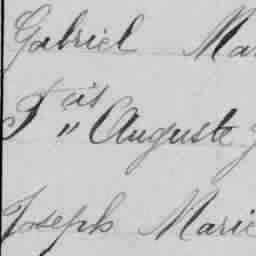 Gabriel Ma
Fcis " Auguste J
Joseph Marie